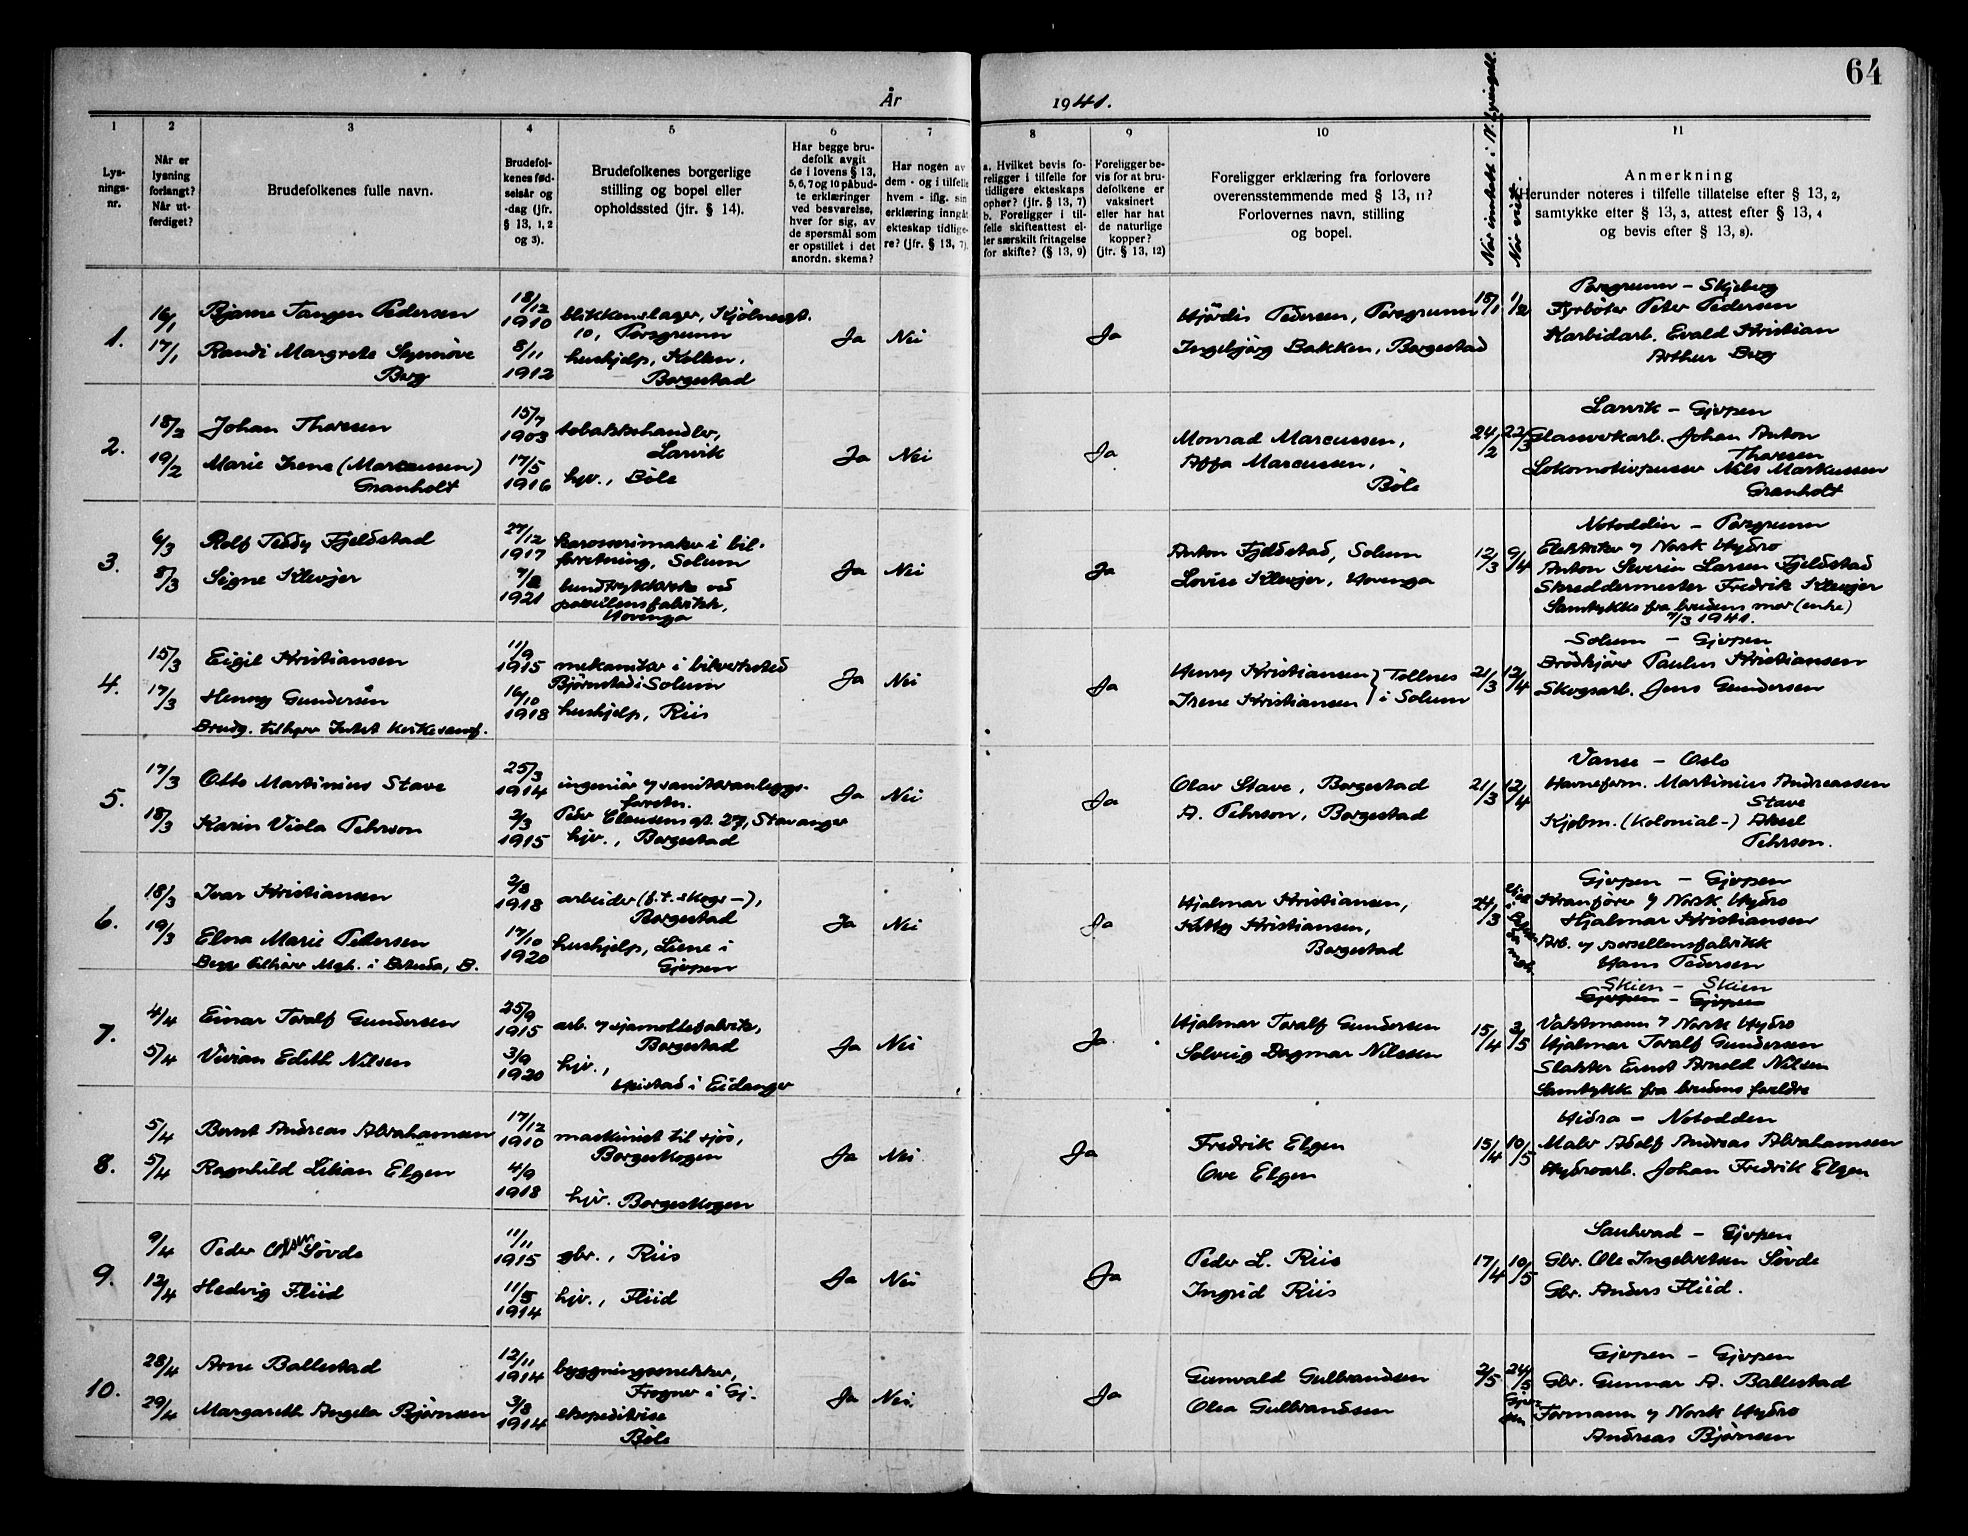 64
År 1941.
1 2 3 4 5 6 7 8 9 10 11
Lysningsnr.
Når er lysning forlangt? Når utferdiget?
Brudefolkenes fulle navn.
Brudefolkenes fødselsår og -dag (jfr. § 13, 1, 2 og 3).
Brudefolkenes borgerlige stilling og bopel eller opholdssted (jfr. § 14).
Har begge brudefolk avgit de i lovens § 13, 5, 6, 7 og 10 påbudte erklæringer ved besvarelse, hver for sig, av de spørsmål som er opstillet i det anordn. skema?
Har nogen av dem - og i tilfelle hvem - iflg. sin erklæring inngått ekteskap tidligere? (jfr. § 13, 7).
a. Hvilket bevis foreligger i tilfelle for tidligere ekteskaps ophør? (jfr. § 13, 7) b. Foreligger i tilfelle skifteattest eller særskilt fritagelse for skifte? (§ 13, 9)
Foreligger bevis for at brudefolkene er vaksinert eller har hat de naturlige kopper? (jfr. § 13, 12)
Foreligger erklæring fra forlovere overensstemmende med § 13, 11? Forlovernes navn, stilling og bopel.
Når viet.
Anmerkning
Herunder noteres i tilfelle tillatelse efter § 13, 2, samtykke efter § 13, 3, attest efter § 13, 4 og bevis efter § 13, 8).
1. 16/1 Bjarne Tangen Pedersen 18/12 1910 blikkenslager, Kjölnesgt. 10, Porsgrunn
17/1 Randi Margrete Synnöve Berg 8/11 1912 hushjelp, Kollen, Borgestad
Ja Nei Ja
Hjördis Pedersen, Porsgrunn
Ingebjörg Bakken, Borgestad
18/1 1/2
Porsgrunn - Skjeberg
Fyrböter Peter Pedersen
Karbidarb. Evald Kristian
Arthur Berg
2. 18/2 Johan Thoresen 15/7 1903 tobakkshandler, Larvik
19/2 Marie Irene (Marcussen) Granholt 17/5 1916 hjv., Böle
Ja Nei Ja
Monrad Marcussen,
Affa Marcussen,
Böle
24/2 22/3
Larvik - Gjerpen
Glassverkarb. Johan Anton
Thoresen
Lokomotivpusser Nils Markussen
Granholt
3. 6/3 Rolf Teddy Fjeldstad 27/12 1917 karosserimaker i bilforretning, Solum
8/3 Signe Klevjer 1921 bundtrykkerske ved porselensfabrikk, Hovenga
Ja Nei Ja
Anton Fjeldstad, Solum
Lovise Klevjer, Hovenga
12/3 9/4
Notodden - Porsgrunn
Elektriker v Norsk Hydro
Anton Severin Larsen Fjeldstad
Skreddermester Fredrik Klevjer
Samtykke fra brudens mor (enke)
7/3 1941.
4. 15/3 Eigil Kristiansen 11/9 1915 mekaniker i bilverksted Björnstad i Solum
17/3 Henny Gundersen 16/10 1918 hushjelp, Riis
Brudg. tilhører Intet kirkesamf.
Ja Nei Ja
Henry Kristiansen } Tollnes
Irene Kristiansen } i Solum
21/3 12/4
Solum - Gjerpen
Brödkjörer Paulus Kristiansen
Skogsarb. Jens Gundersen
5. 17/3 Otto Martinius Stave 25/3 1914 ingeniör v sanitæranleggsforetn. Pedr Clausens gt. 27, Stavanger
18/3 Karin Viola Pehrson 2/3 1915 hjv., Borgestad
Ja Nei Ja
Olav Stave, Borgestad
A. Pehrson, Borgestad
21/3 12/4
Vanse - Oslo
Havneform. Martinius Andreassen
Stave
Kjøbm. (Kolonial-) Aksel
Pehrson.
6. 18/3 Ivar Kristiansen 2/8 1918 arbeider (f.t. skogs-), Borgestad
19/3 Elna Marie Pedersen 17/10 1920 hushjelp, Liene i Gjerpen
Begge tilhører Mgh. i Betesda, B.
Ja Nei Ja
Hjalmar Kristiansen,
Kitty Kristiansen,
Borgestad
24/3
Gjerpen - Gjerpen
Kranförer v Norsk Hydro
Hjalmar Kristiansen
Arb. v porsellensfabrikk
Hans Pedersen
7. 4/4 Einar Toralf Gundersen 25/9 1915 arb. v sjamottefabrik, Borgestad
5/4 Vivian Edith Nilsen 3/9 1920 hjv., Heistad i Eidanger
Ja Nei Ja
Hjalmar Toralf Gundersen
Solveig Dagmar Nilssen
15/4 3/5
Skien - Skien
Gjerpen - Gjerpen
Vaktmann v Norsk Hydro
Hjalmar Toralf Gundersen
Slakter Ernst Arnold Nilsen
Samtykk fra brudens foreldre
8. 5/4 Bernt Andreas Abrahamsen 17/12 1910 maskinist til sjös, Borgeskogen
5/4 Ragnhild Lilian Elgen 4/9 1918 hjv. Borgeskogen
Ja Nei Ja
Fredrik Elgen
Ove Elgen
15/4 10/5
Hidra - Notodden
Maler Adolf Andreas Abrahamsen
Hydroarb. Johan Fredrik Elgen
9. 9/4 Peder Olsen Sövde 11/11 1915 gbr., Riis
12/4 Hedvig Fliid 11/5 1914 hjv., Fliid
Ja Nei Ja
Peder L. Riis
Ingrid Riis
17/4 10/5
Sauherad - Gjerpen
Gbr. Ole Ingebretsen Sövde
Gbr. Anders Fliid.
10. 28/4 Arne Ballestad 12/11 1914 bygningssnekker, Frogner i Gj.
29/4 Margareth Angela Bjørnsen 3/8 1914 ekspeditrise Böle
Ja Nei Ja
Gunvald Gulbrandsen
Olea Gulbrandsen
2/5 24/5 Gjerpen
Gjerpen - Gjerpen
Gbr. Gunnar A. Ballestad
Formann v Norsk Hydro
Andreas Bjørnsen